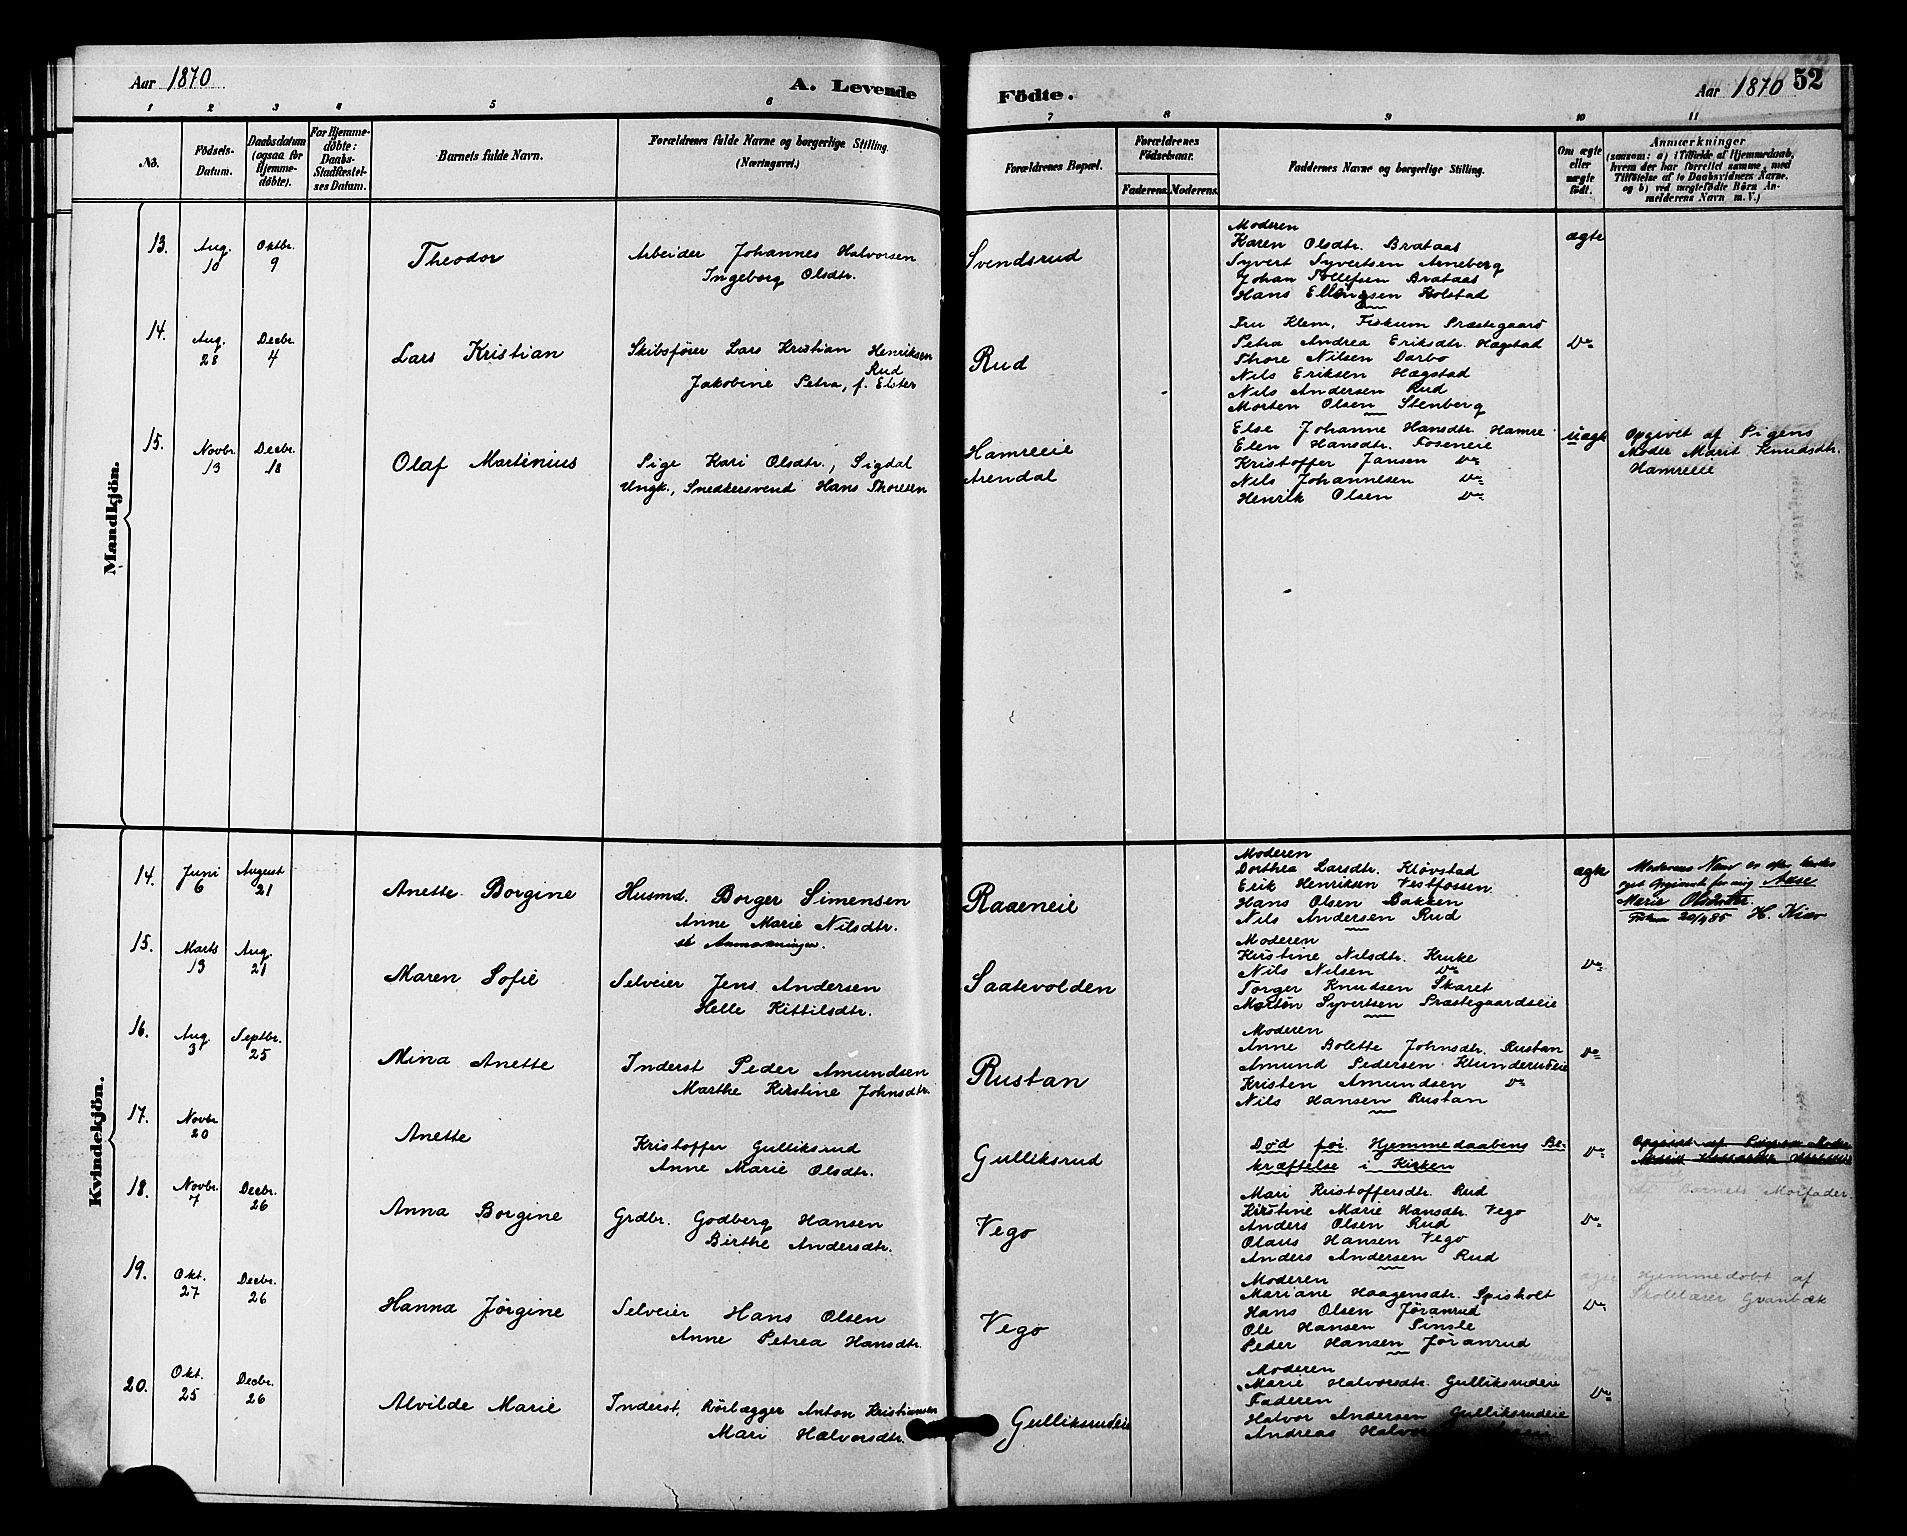 Aar 1870
A. Levende Födte.
Aar 1870 52
1 2 3 4 5 6 7 8 9 10 11
No.
Födsels-Datum.
Daabsdatum (ogsaa for Hjemme-döbte).
For Hjemme-døbte: Daabs-Stadfæstel-ses Datum.
Barnets fulde Navn.
Forældrenes fulde Navne og borgerlige Stilling. (Næringsvei.)
Forældrenes Bopæl.
Forældrenes Födselsaar.
Faderens. Moderens.
Faddernes Navne og borgerlige Stilling.
Om ægte eller uægte født.
Anmærkninger
(saasom: a) i Tilfælde af Hjemmedaab,
hvem der har forrettet samme, med
Tilføielse af to Daabsvidners Navne,
og b) ved uægtefödte Börn An-
melderens Navn m. V.)
Mandkjön.
13. Aug. 10 Oktbr. 9
Theodor
Arbeider Johannes Halvorsen
Ingeborg Olsdtr.
Svendsrud
Moderen
Karen Olsdtr. Brataas
Syvert Syvertsen Arneberg
Johan Tollefsen Brataas
Hans Ellingsen Kolstad
ægte
14. Aug. 28 Decbr. 4
Lars Kristian
Skibsfører Lars Kristian Henriksen
Rud
Jakobine Petra, f. Elster
Rud
Fru Klem, Fiskum Præstegaard
Petra Andrea Eriksdtr. Hægstad
Thore Nilsen Darbo
Nils Eriksen Hægstad
Nils Andersen Rud
Morten Olsen Stenberg
Do
15. Novbr. 13 Decbr. 18
Olaf Martinius
Pige Kari Olsdtr., Sigdal
Ungk., Snedkersvend Hans Thoresen
Hamreeie
Arendal
Else Johanne Hansdtr. Hamre
Elen Hansdtr. Foseneie
Kristoffer Jansen Do
Nils Johannesen Do
Henrik Olsen Do
uægte
Opgivet af Pigens
Moder Marit Knudsdtr.
Hamreeie
Kvindekjön.
14. Juni 6 August 21
Anette Borgine
Husmd. Borger Simensen
Anne Marie Nilsdtr.
se Anmærkninger.
Raaeneie
Moderen
Dorthea Larsdtr. Kløvstad
Erik Henriksen Vestfossen
Hans Olsen Bakken
Nils Andersen Rud
ægte
Moderens Navn er efter hendes
eget Opgivende for mig Aase
Marie Olsdatter.
Fiskum 20/4 85 H. Kiær
15. Marts 13 Aug. 21
Maren Sofie
Selveier Jens Andersen
Helle Kittilsdtr.
Saatevolden
Moderen
Kirstine Nilsdtr. Kruke
Nils Nilsen Do
Torger Knudsen Skaret
Morten Syvertsen Præstegaardseie
Do
16. Aug. 3 Septbr. 25
Mina Anette
Inderst Peder Amundsen
Marthe Kirstine Johnsdtr.
Rustan
Moderen
Anne Bolette Johnsdtr. Rustan
Amund Pedersen Klunderudeie
Kristen Amundsen Do
Nils Hansen Rustan
Do
17. Novbr. 20
Anette
Kristoffer Gulliksrud
Anne Marie Olsdtr.
Gulliksrud
Død før Hjemmedaabens Be-
kræftelse i Kirken
Do
Opgivet af Pigens Moder
18. Novbr. 7 Decbr. 26
Anna Borgine
Grdbr. Godberg Hansen
Birthe Andersdtr.
Vego
Mari Kristoffersdtr. Rud
Kirstine Marie Hansdtr. Vego
Anders Olsen Rud
Olaus Hansen Vego
Anders Andersen Rud
Do
19. Okt. 27 Decbr. 26
Hanna Jørgine
Selveier Hans Olsen
Anne Petrea Hansdtr.
Vego
Moderen
Mariane Haagensdtr. Spisholt
Hans Olsen Jøranrud
Ole Hansen Sinsle
Peder Hansen Jøranrud
Do
20. Okt. 25 Decbr. 26
Alvilde Marie
Inderst, Rørlægger Anton Kristiansen
Mari Halvorsdtr.
Gulliksrudeie
Moderen
Marie Halvorsdtr. Gulliksrudeie
Faderen
Halvor Andersen Gulliksrudeie
Andreas
Do